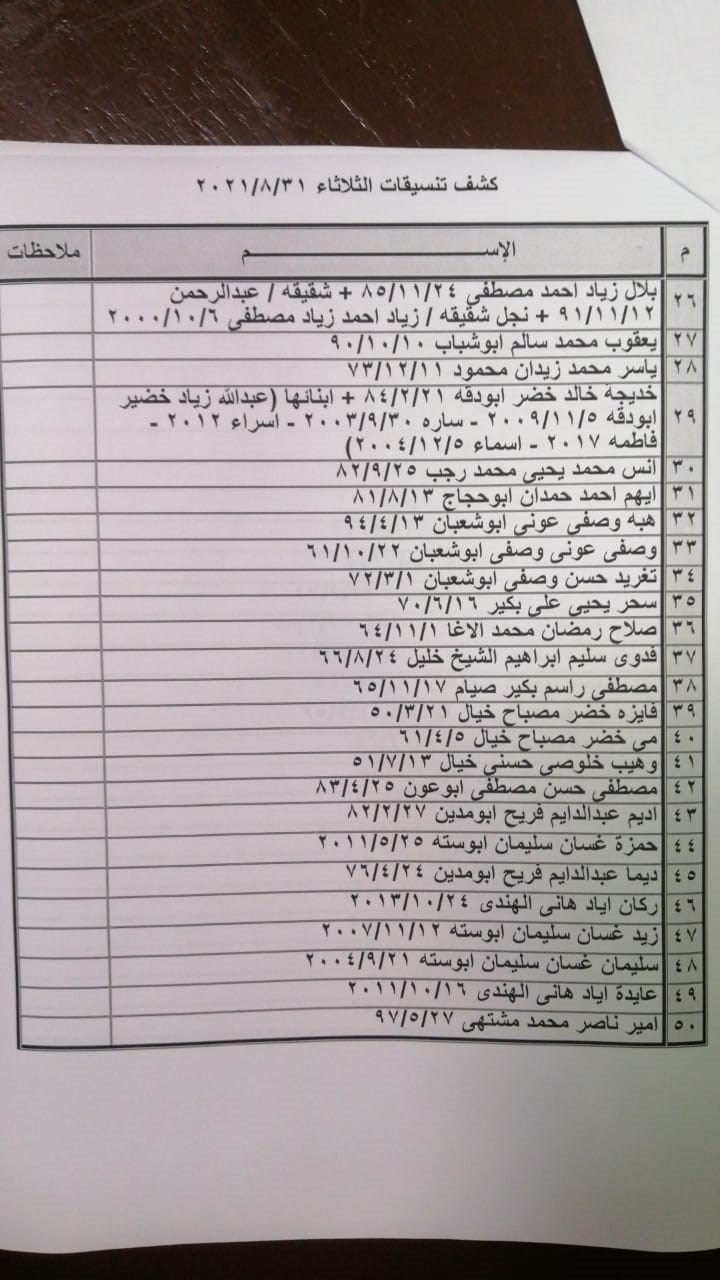 كشف تنسيقات الثلاثاء ٢٠٢١/٨/٣١
م الإســـــم ملاحظات
٢٦ بلال زياد احمد مصطفى ٨٥/١١/٢٤ + شقيقه / عبدالرحمن
٩١/١١/١٢ + نجل شقيقه / زياد احمد زياد مصطفى ٢٠٠٠/١٠/٦
٢٧ يعقوب محمد سالم ابوشباب ٩٠/١٠/١٠
٢٨ ياسر محمد زيدان محمود ٧٣/١٢/١١
٢٩ خديجة خالد خضر ابودقه ٨٤/٢/٢١ + ابنائها (عبدالله زياد خضير
ابودقه ٢٠٠٩/١١/٥ - ساره ٢٠٠٣/٩/٣٠ - اسراء ٢٠١٢ -
فاطمه ٢٠١٧ - اسماء ٢٠٠٤/١٢/٥)
٣٠ انس محمد يحيى محمد رجب ٨٢/٩/٢٥
٣١ ايهم احمد حمدان ابوحجاج ٨١/٨/١٣
٣٢ هبه وصفى عونى ابوشعبان ٩٤/٤/١٣
٣٣ وصفى عونى وصفى ابوشعبان ٦١/١٠/٢٢
٣٤ تغريد حسن وصفى ابوشعبان ٧٢/٣/١
٣٥ سحر يحيى على بكير ٧٠/٦/١٦
٣٦ صلاح رمضان محمد الاغا ٦٤/١١/١
٣٧ فدوى سليم ابراهيم الشيخ خليل ٦٦/٨/٢٤
٣٨ مصطفى راسم بكير صيام ٦٥/١١/١٧
٣٩ فايزه خضر مصباح خيال ٥٠/٣/٢١
٤٠ مى خضر مصباح خيال ٦١/٤/٥
٤١ وهيب خلوصى حسنى خيال ٥١/٧/١٣
٤٢ مصطفى حسن مصطفى ابوعون ٨٣/٤/٢٥
٤٣ اديم عبدالدايم فريح ابومدين ٨٢/٢/٢٧
٤٤ حمزة غسان سليمان ابوسته ٢٠١١/٥/٢٥
٤٥ ديما عبدالدايم فريح ابومدين ٧٦/٤/٢٤
٤٦ ركان اياد هانى الهندى ٢٠١٣/١٠/٢٤
٤٧ زيد غسان سليمان ابوسته ٢٠٠٧/١١/١٢
٤٨ سليمان غسان سليمان ابوسته ٢٠٠٤/٩/٢١
٤٩ عايدة اياد هانى الهندى ٢٠١١/١٠/١٦
٥٠ امير ناصر محمد مشتهى ٩٧/٥/٢٧